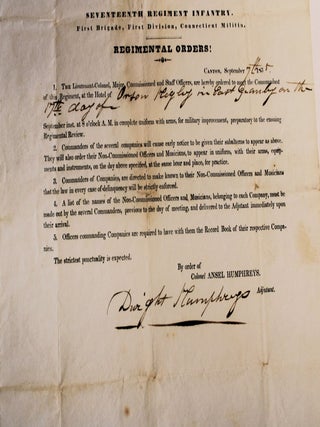 SEVENTEENTH REGIMENT INFANTRY.
First Brigade, First Division, Connecticut Militia.
REGIMENTAL ORDERS!
CANTON, September 7th
1. THE Lieutenant-Colonel, Major, Commissioned and Staff Officers, are hereby ordered to meet the Commandant
of this Regiment, at the Hotel of Orson in East Granby on the
17th day of
September inst. at 8 o'clock A.M. in complete uniform with arms, for military improvement, preparatory to the ensuing
Regimental Review.
2. Commanders of the several companies will cause early notice to be given their subalterns to appear as above.
They will also order their Non-Commissioned Officers and Musicians, to appear in uniform, with their arms, equip-
ments and instruments, on the day above specified, at the same hour and place, for practice.
3. Commanders of Companies, are directed to make known to their Non-Commissioned Officers and Musicians
that the law in every case of delinquency will be strictly enforced.
4. A list of the names of the Non-Commissioned Officers and Musicians, belonging to each Company, must be
made out by the several Commanders, previous to the day of meeting, and delivered to the Adjutant immediately upon
their arrival.
5. Officers commanding Companies are required to have with them the Record Book of their respective Compa-
nies.
The strictest punctuality is expected.
By order of
Colonel ANSEL HUMPHREYS.
Dwight Humphreys Adjutant.